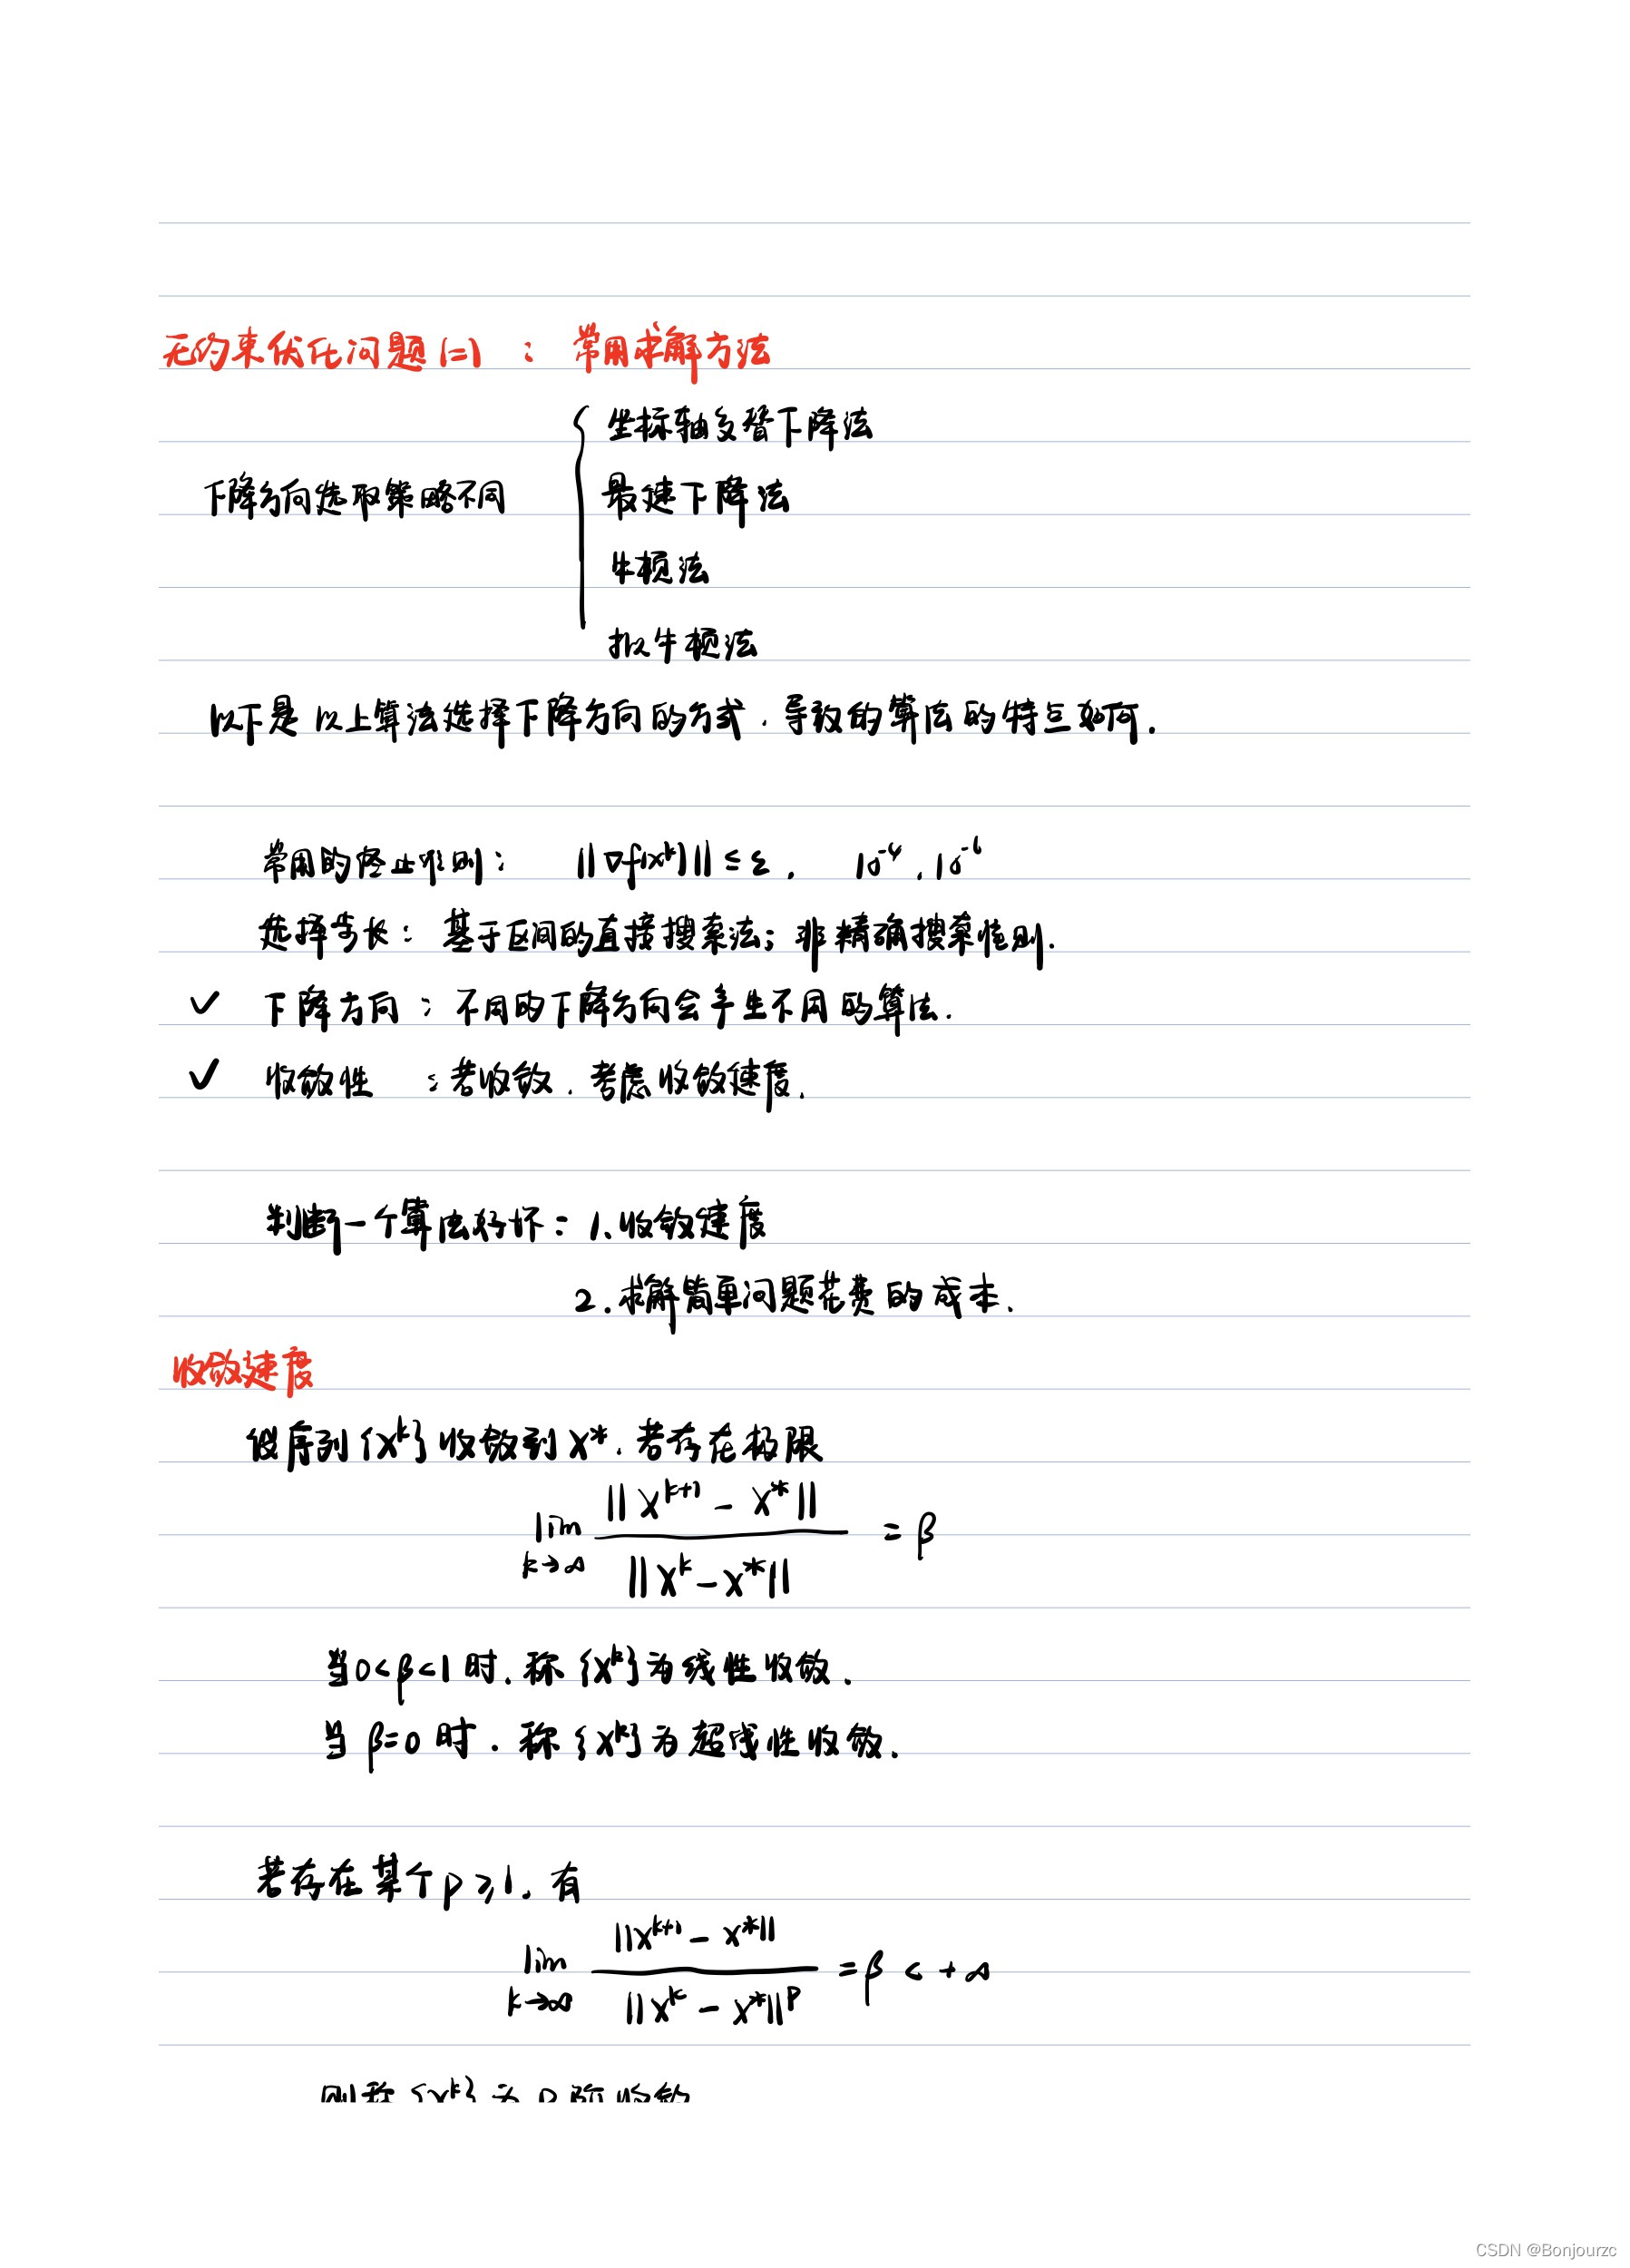 无约束优化问题(二)：常用求解方法
坐标轴交替下降法
下降方向选取策略不同
最速下降法
牛顿法
拟牛顿法
以下是以上算法选择下降方向的方式，导致的算法的特点如何.
常用的终止准则： ||∇f(x^k)|| ≤ ε, 10^-4, 10^-6
选择步长：基于区间的直接搜索法；非精确搜索准则.
✓ 下降方向：不同的下降方向会产生不同的算法.
✓ 收敛性：若收敛，考虑收敛速度.
判断一个算法好坏：1.收敛速度
2.求解简单问题花费的成本.
收敛速度
假序列{x^k}收敛到x*，若存在极限
lim k→∞ ||x^{k+1} - x*|| / ||x^k - x*|| = β
当0<β<1时，称{x^k}为线性收敛.
当β=0时，称{x^k}为超线性收敛.
若存在某个p≥1，有
lim k→∞ ||x^{k+1} - x*|| / ||x^k - x*||^p = β < +∞
则称{x^k}为p阶收敛
CSDN @Bonjourzc